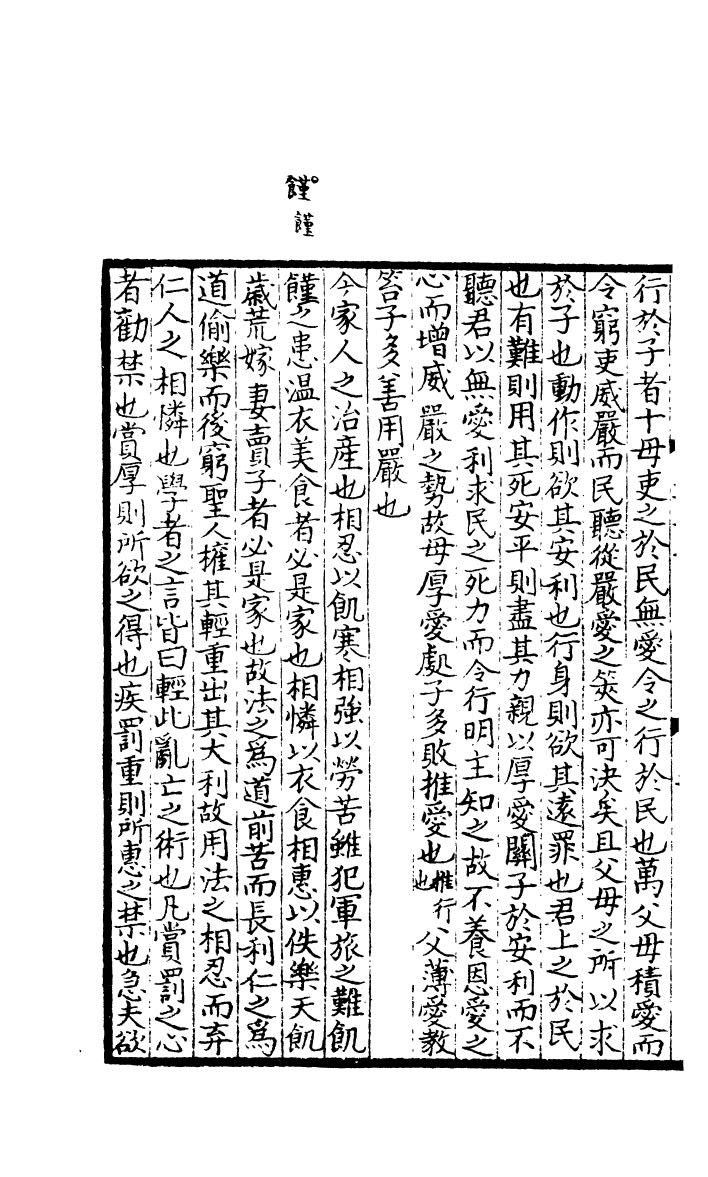 饉
饉
行於子者十母吏之於民無愛令之行於民也萬父母積愛而
令窮吏威嚴而民聽從嚴愛之筴亦可決矣且父母之所以求
於子也動作則欲其安利也行身則欲其遠罪也君上之於民
也有難則用其死安平則盡其力親以厚愛關子於安利而不
聽君以無愛利求民之死力而令行明主知之故不養恩愛之
心而增威嚴之勢故母厚愛處子多敗推愛也推行也父薄愛教
笞子多善用嚴也
今家人之治産也相忍以飢寒相強以勞苦雖犯軍旅之難飢
饉之患温衣美食者必是家也相憐以衣食相惠以佚樂天飢
歳荒嫁妻賣子者必是家也故法之爲道前苦而長利仁之爲
道偷樂而後窮聖人權其輕重出其大利故用法之相忍而弃
仁人之相憐也學者之言皆曰輕此亂亡之術也凡賞罰之心
者勸禁也賞厚則所欲之得也疾罰重則所惠之禁也急夫欲